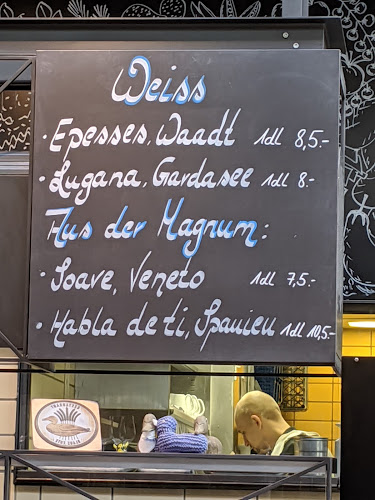 Weiss
· Epesses, Waadt 1dl 8,5.-
· Lugana, Gardasee 1dl 8.-
Aus der Magnum:
· Soave, Veneto 1dl 7,5.-
· Habla de ti, Spanien 1dl 10,5.-